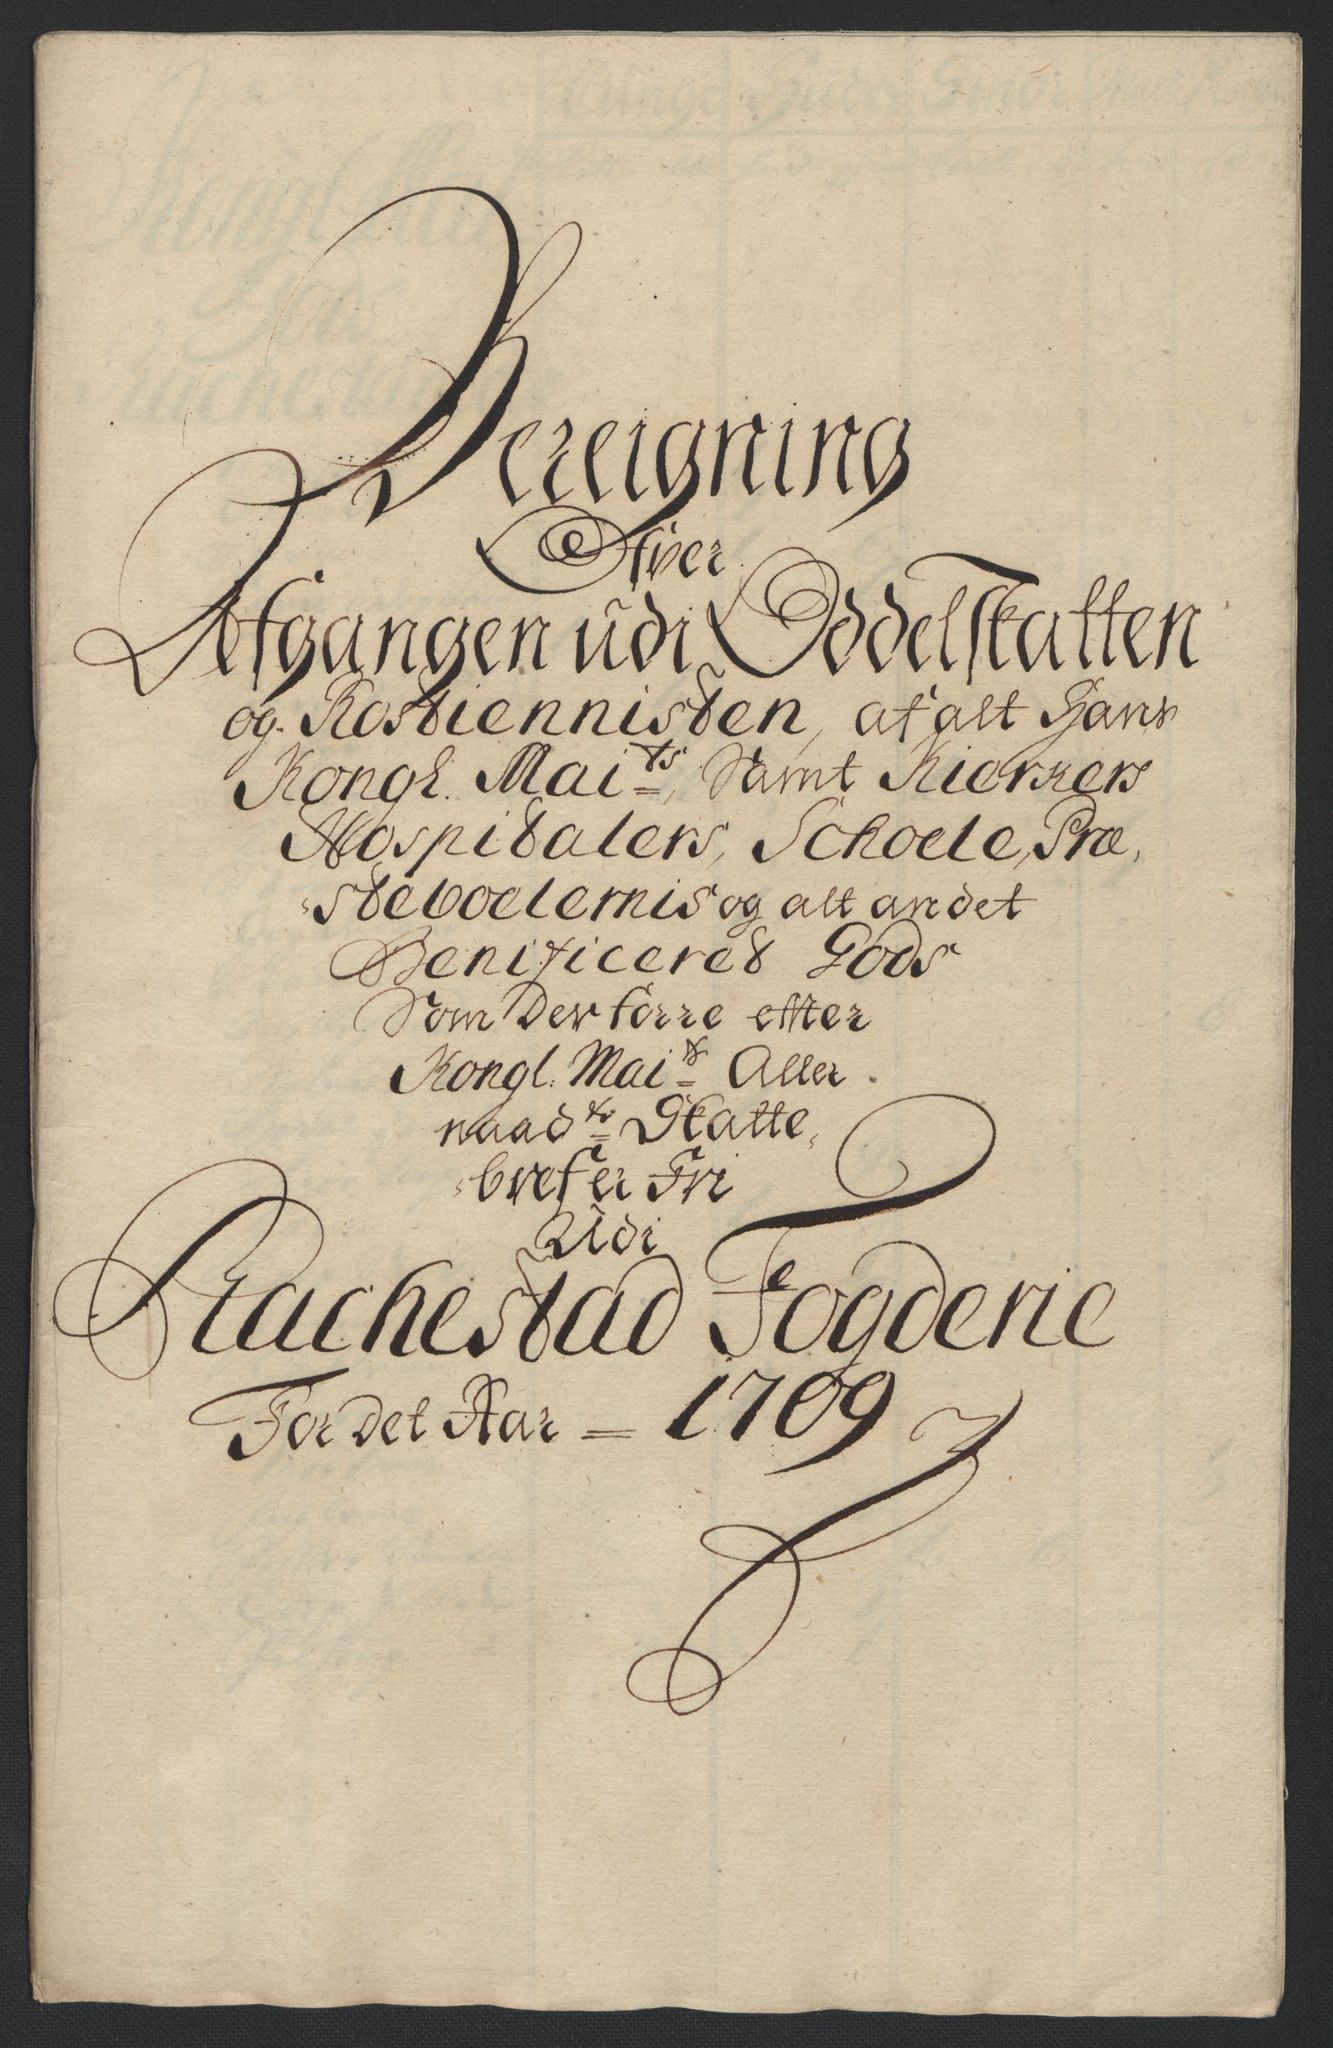 Bereigning
Ofver
Afgangen udi Oddelskatten
og Rostiennisten, af alt Hans
Kongl. Maits, Samt Kierkers
Hospitalers, Schoele, Præ,
steboelernis og alt andet
Benificeret Gods
Som Derforre effter
Kongl: Maits Aller
naadte Skatte,
brefer Fri
Udi
Rachestad Fogderie
For Det Aar = 1709